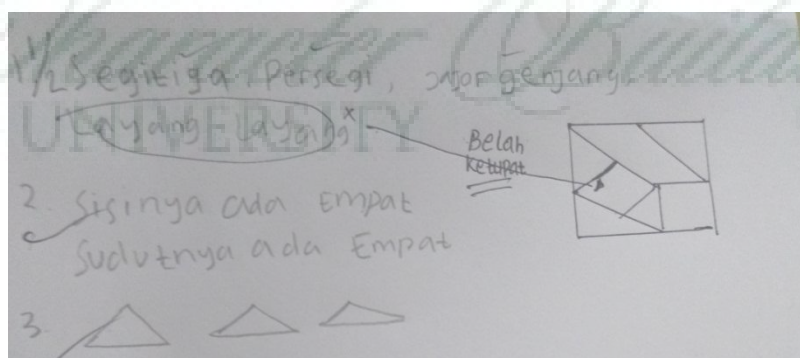 1 1/2 Segitiga, Persegi, Jajargenjang.
Layang Layang x
Belah
Ketupat
2. Sisinya ada Empat
Sudutnya ada Empat
3.